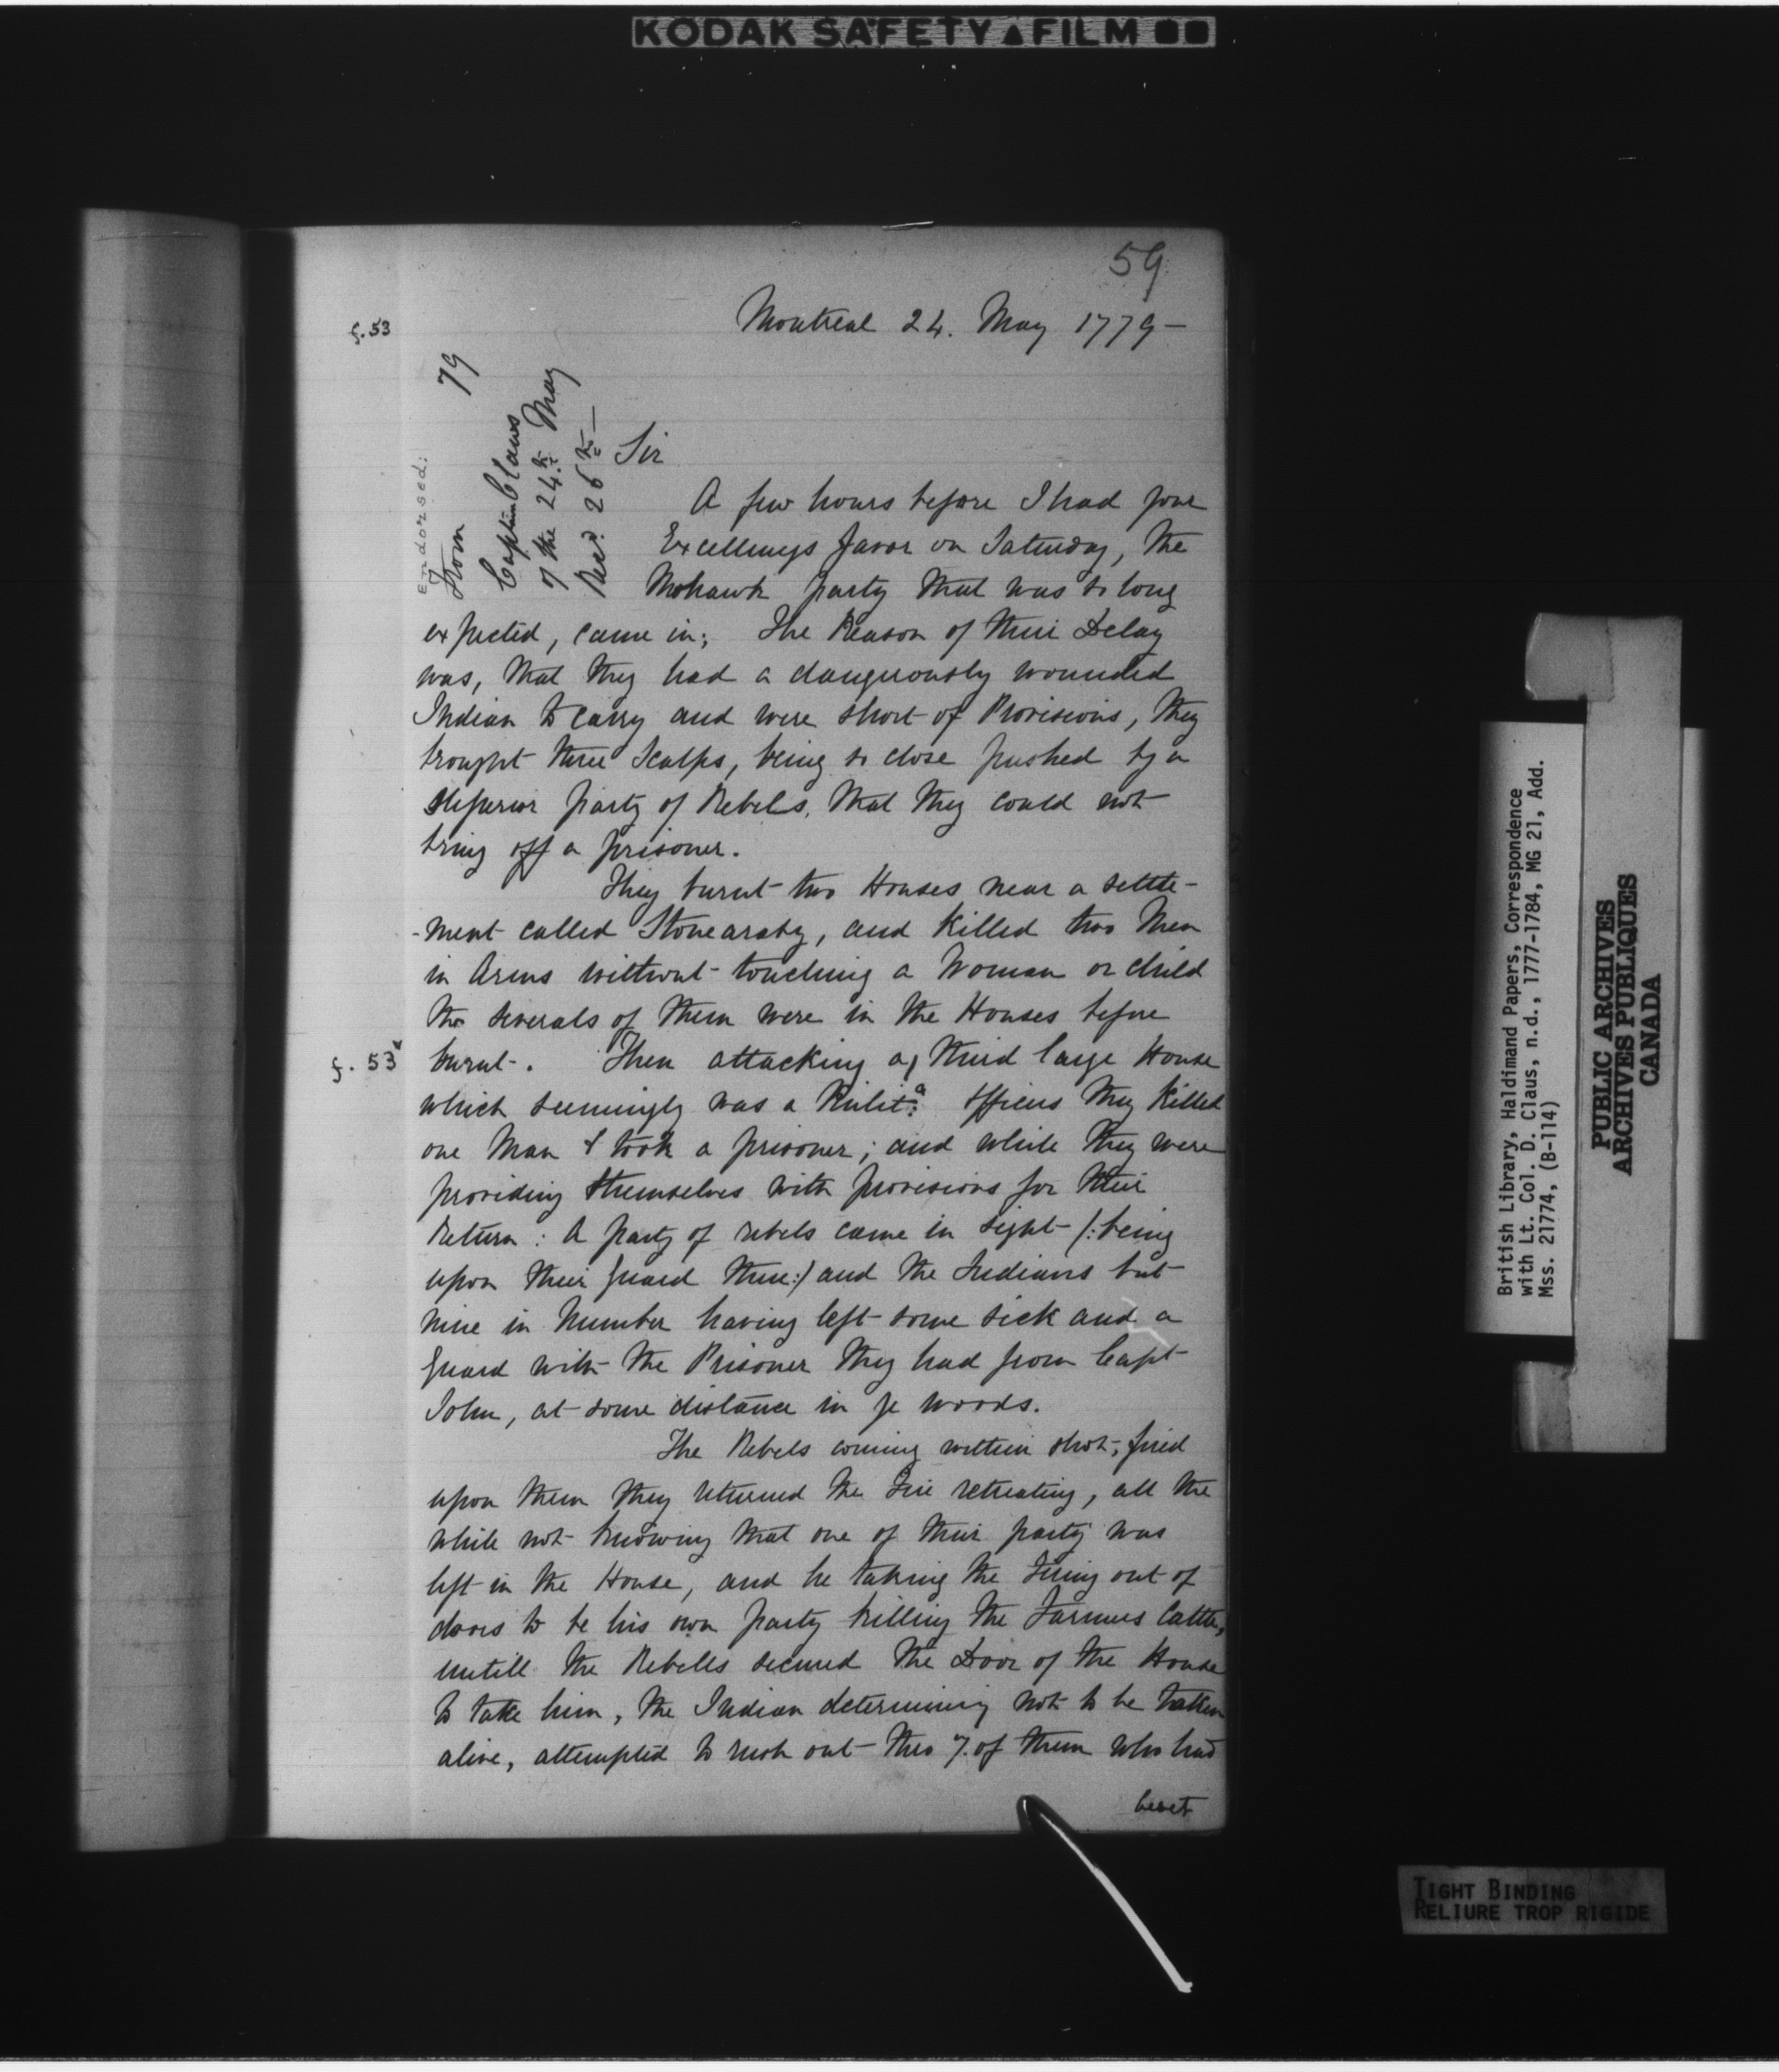 KODAK SAFETY ▲ FILM ■■
59
f. 53
Montreal 24. May 1779 —
Endorsed:
From 79
Captn Claus
of the 24.th May
Recd. 26th —
Sir
A few hours before I had your
Excellencys favor on Saturday, the
Mohawk party that was so long
expected, came in; The Reason of their Delay
was, that they had a dangerously wounded
Indian to carry and were short of Provisions, they
brought three Scalps, being so close pushed by a
Superior party of Rebels, that they could not
bring off a prisoner.
They burnt two Houses near a settle-
-ment called Stonearaby, and killed two Men
in Arms without touching a Woman or child
tho severals of them were in the Houses before
f. 53v
burnt. Then attacking a third large House
which seemingly was a Milit:a officers they killed
one Man & took a prisoner; and while they were
providing themselves with provisions for their
Return: A party of rebels came in sight (:being
upon their guard there:) and the Indians but
nine in Number having left some sick and a
guard with the Prisoner they had from Capt
John, at some distance in ye woods.
The Rebels coming within shot, fired
upon them they returned the Fire retreating, all the
while not knowing that one of their party was
left in the House, and he taking the Firing out of
doors to be his own party killing the Farmers Cattle,
untill the Rebells secured the Door of the House
to take him, the Indian determining not to be taken
alive, attempted to rush out thro 7. of them who had
beset
British Library, Haldimand Papers, Correspondence
with Lt. Col. D. Claus, n.d., 1777-1784, MG 21, Add.
Mss. 21774, (B-114)
PUBLIC ARCHIVES
ARCHIVES PUBLIQUES
CANADA
TIGHT BINDING
RELIURE TROP RIGIDE